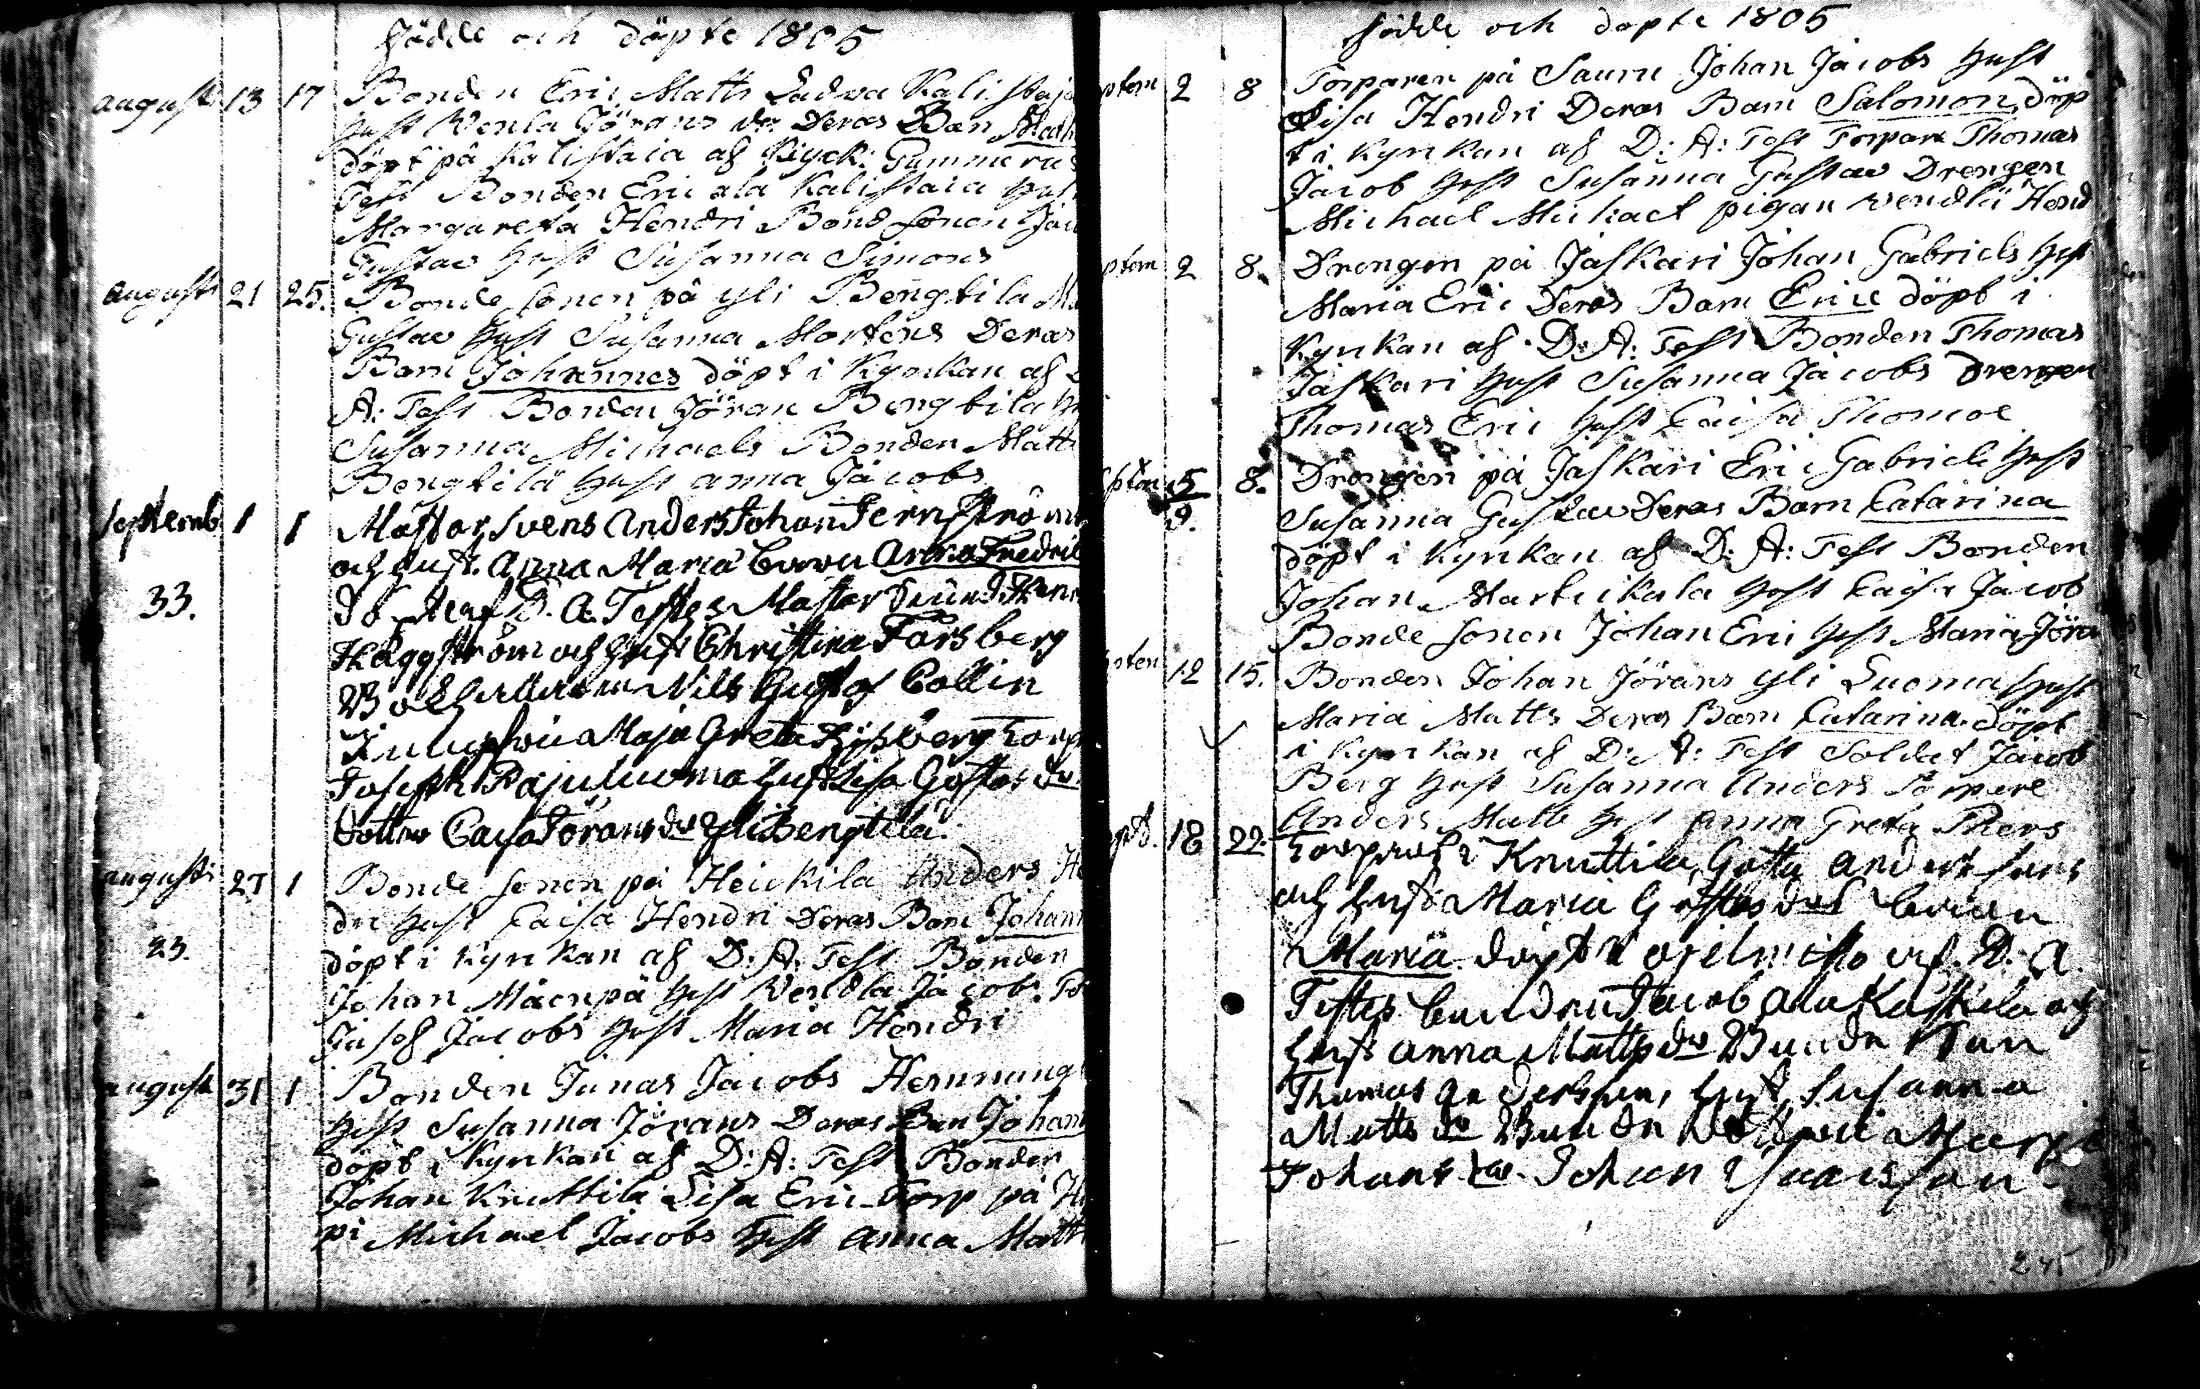 födde och döpte 1805
august 13 17 Bonden Eric Matts Ladwa Kalistaja
Hust Venla Jörans dr Deras Barn
döpt på Kalistaia af Kyck: Gummerus
Test Bonden Eric ala Kalistaia Hust
Margareta Hendri Bond sonen Jac
Gustav Hust Susanna Simons
august 21 25. Bonde sonen på yli Bengtila Ma
Gustav Hust Susanna Mortens Deras
Barn Johannes döpt i Kyrckan af D
A: Test Bonden Jöran Bengtila Hu
Susanna Michaels Bonden Matts
Bengtilä Hust anna Jacobs
septemb 1 1 Mästar Svens Anders Johan Fernström
och hust. Anna Maria barn Anna Fredric
33. af D. A. Testes Mästar
Häggström och hust Christina Forsberg
Nils Gustaf Collin
Maja Greta
Joseph Pajuluoma hust Lisa Göstas dr
dotter Caisa Jörans dr Yli Bengtilä.
august 27 1 Bonde sonen på Heickila Anders He
dri Hust Caisa Hendri Deras Barn Johann
23. döpt i Kyrckan af D: A: Test Bonden
Johan Mäenpä Hust Vendla Jacobs
Jacobs Hust Maria Hendri
august 31 1 Bonden Junas Jacobs Hemming
Hust Susanna Jörans Deras Barn Johann
döpt i Kyrckan af D: A: Test Bonden
Johan Knuttila Lisa Eric Torp på H
pi Michael Jacobs Hust anna Matts
födde och döpte 1805
ptem 2 8 Torparen på Sauru Johan Jacobs Hust
Lisa Hendri Deras Barn Salomon döp
t i Kyrckan af D: A: Test Torpare Thomas
Jacob Hust Susanna Gustav Drengen
Michael Mickael pigan Vendla Hend
ptem 2 8. Drengen på Jaskari Johan Gabriels Hust
Maria Eric Deras Barn Eric döpt i
Kyrckan af D: A: Test Bonden Thomas
Jaskari Hust Susanna Jacobs Drengen
Thomas Eric Hust Caisa Thomae
ptem 5 8. Drengen på Jaskari Eric Gabriels Hust
9. Susanna Gustav Deras Barn Catarina
döpt i Kyrckan af D: A: Test Bonden
Johan Martikala Hust Caisa Jacob
Bonde sonen Johan Eric Hust Maria Jöra
ptem 12 15. Bonden Johan Jörans yli Luoma Hust
Maria Matts Deras Barn Catarina döpt
i Kyrckan af D: A: Test Soldat Jacob
Berg Hust Susanna Anders Torpare
Anders Matts Hust Anna Greta Phers
pt. 18 22. Knuttila, Gösta Andersson
och hust Maria Göstas dr barn
Maria döpt af D. A.
Testes bonden Jacob ala Kaskela och
hust anna Matts dr Bonde Son
Thomas Andersson, hust Susanna
Matts dr Bonde
Johans dr Johan
245